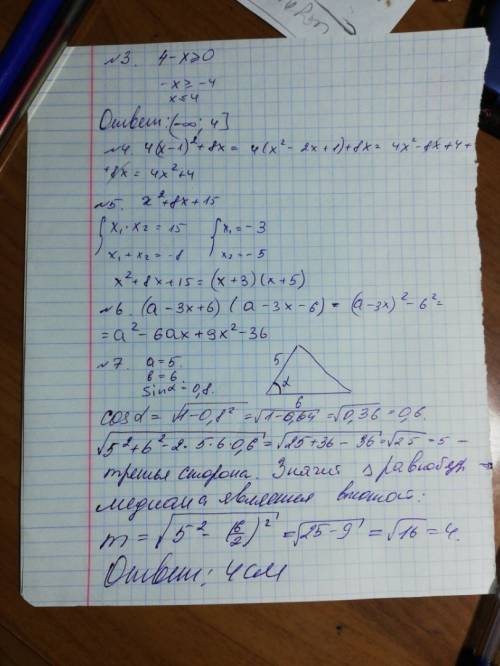 №3. 4-x≥0
-x ≥ -4
x ≤ 4
Ответ: (-∞; 4]
№4. 4(x-1)²+8x = 4(x²-2x+1)+8x = 4x²-8x+4+
+8x = 4x²+4
№5. x²+8x+15
x₁·x₂ = 15 x₁=-3
x₁+x₂ = -8 x₂=-5
x²+8x+15 = (x+3)(x+5)
№6. (a-3x+6)(a-3x-6) = (a-3x)²-6²=
= a²-6ax+9x²-36
№7. a=5.
b=6.
sinα=0,8.
5
α
6
cosα = √1-0,8² = √1-0,64 = √0,36 = 0,6.
√5²+6²-2·5·6·0,6 = √25+36-36 = √25 = 5 -
третья сторона. Значит Δ равнобедр →
медиана является высотой:
m = √5²-(6/2)² = √25-9 = √16 = 4.
Ответ: 4см